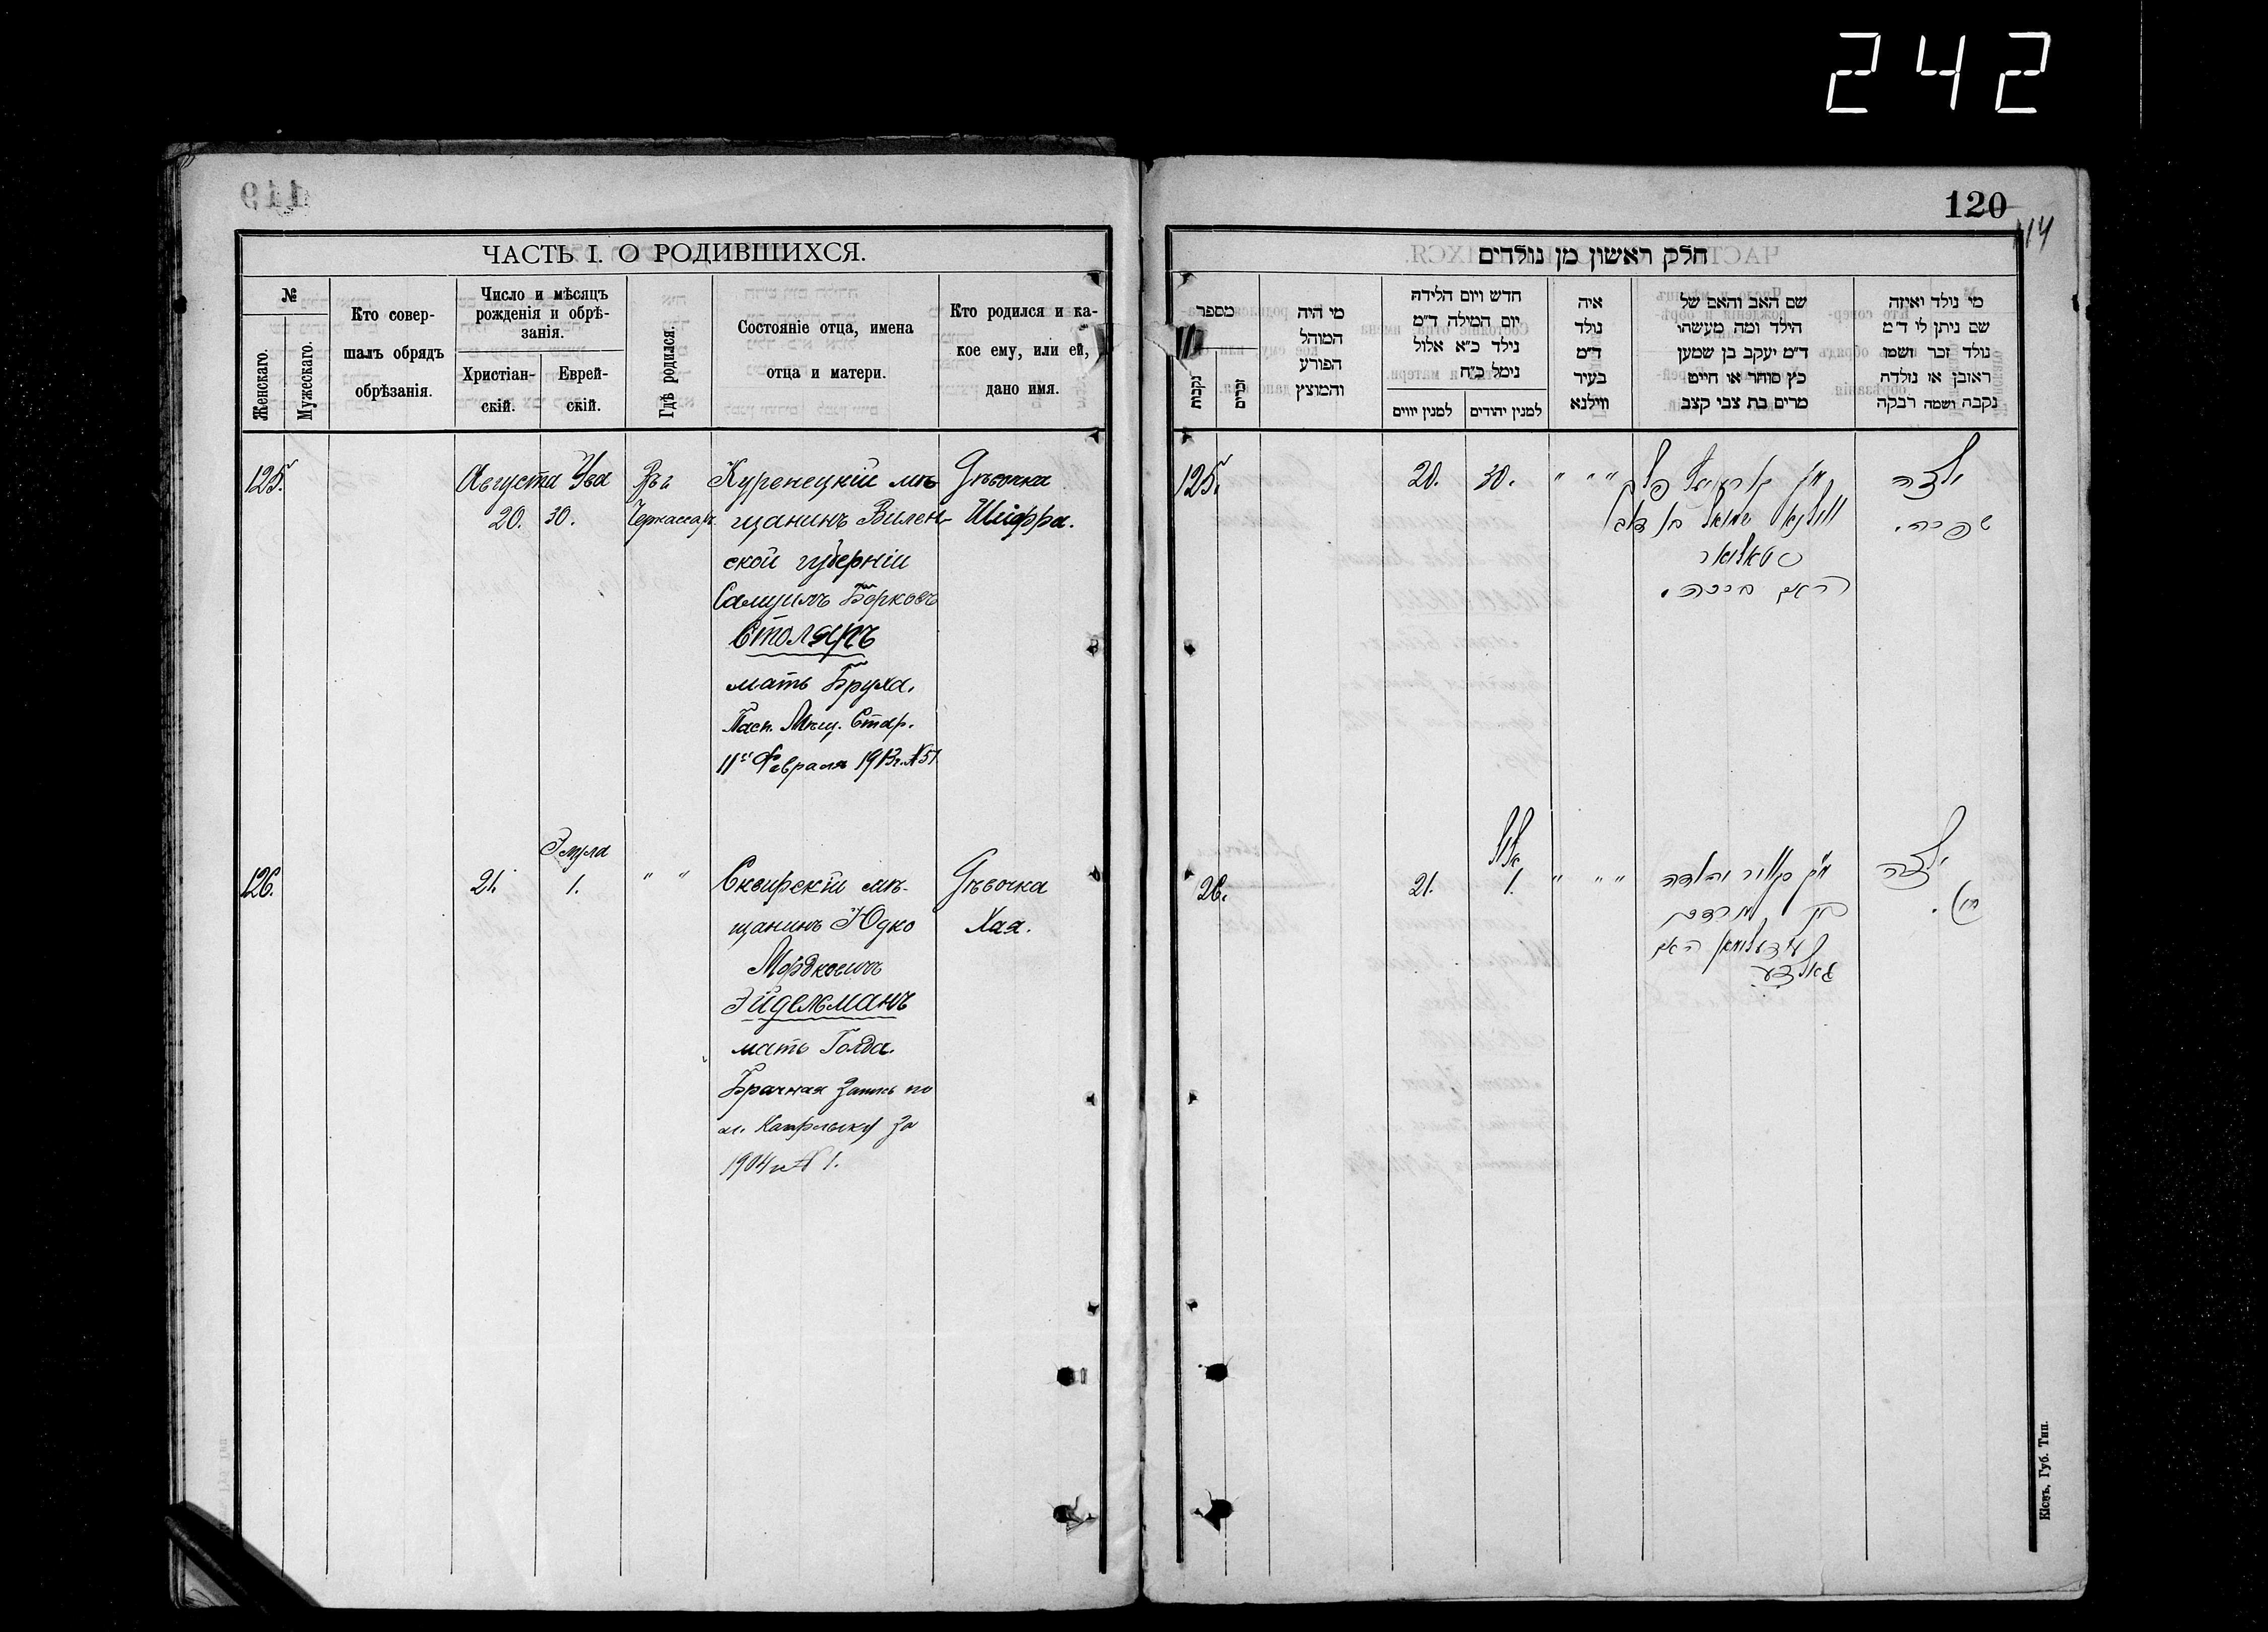 242
119
ЧАСТЬ I. О РОДИВШИХСЯ.
№
Женскаго.
Мужескаго.
Кто совер-
шалъ обрядъ
обрѣзанія.
Число и мѣсяцъ
рожденія и обрѣ-
занія.
Христіан-
скій.
Еврей-
скій.
Гдѣ родился.
Состояніе отца, имена
отца и матери.
Кто родился и ка-
кое ему, или ей,
дано имя.
125.
Августа
20.
Ува
30.
Въ г.
Черкассахъ
Куренецкій мѣ-
щанинъ Вилен-
ской губерніи
Самуилъ Берковъ
Столяръ
мать Бруха.
Пасп. Мѣщ. Стар.
11го Февраля 1913 г. № 51
Дѣвочка
Шифра.
126.
21.
Элула
1.
" "
Сквирскій мѣ-
щанинъ Юдко
Мордковичъ
Эйдельманъ
мать Голда.
Брачная запись по
м. Кагарлыку за
1904 г. № 1.
Дѣвочка
Хая.
120
114
חלק ראשון מן נולדים
מספר
נקבות
זכרים
מי היה
המוהל
הפורע
והמוצץ
חדש ויום הלידה
יום המילה ד"מ
נילד כ"א אלול
נימל כ"ח
למנין יווים
למנין יהודים
איה
נולד
ד"מ
בעיר
ווילנא
שם האב והאם של
הילד ומה מעשהו
ד"מ יעקב בן שמען
כץ סוחר או חייט
מרים בת צבי קצב
מי נילד ואיזה
שם ניתן לי ד"מ
נולד זכר ושמו
ראובן או נולדת
נקבה ושמה רבקה
125.
20.
30.
" " "
ווילנא שמואל בן דוב
סטאליאר
האם ברכה.
ילדה
שפרה.
126.
21.
אלול
1.
" " "
בן מרדכי
איידעלמאן האם
גאלדע
ילדה
חי'.
Кіевъ, Губ. Тип.